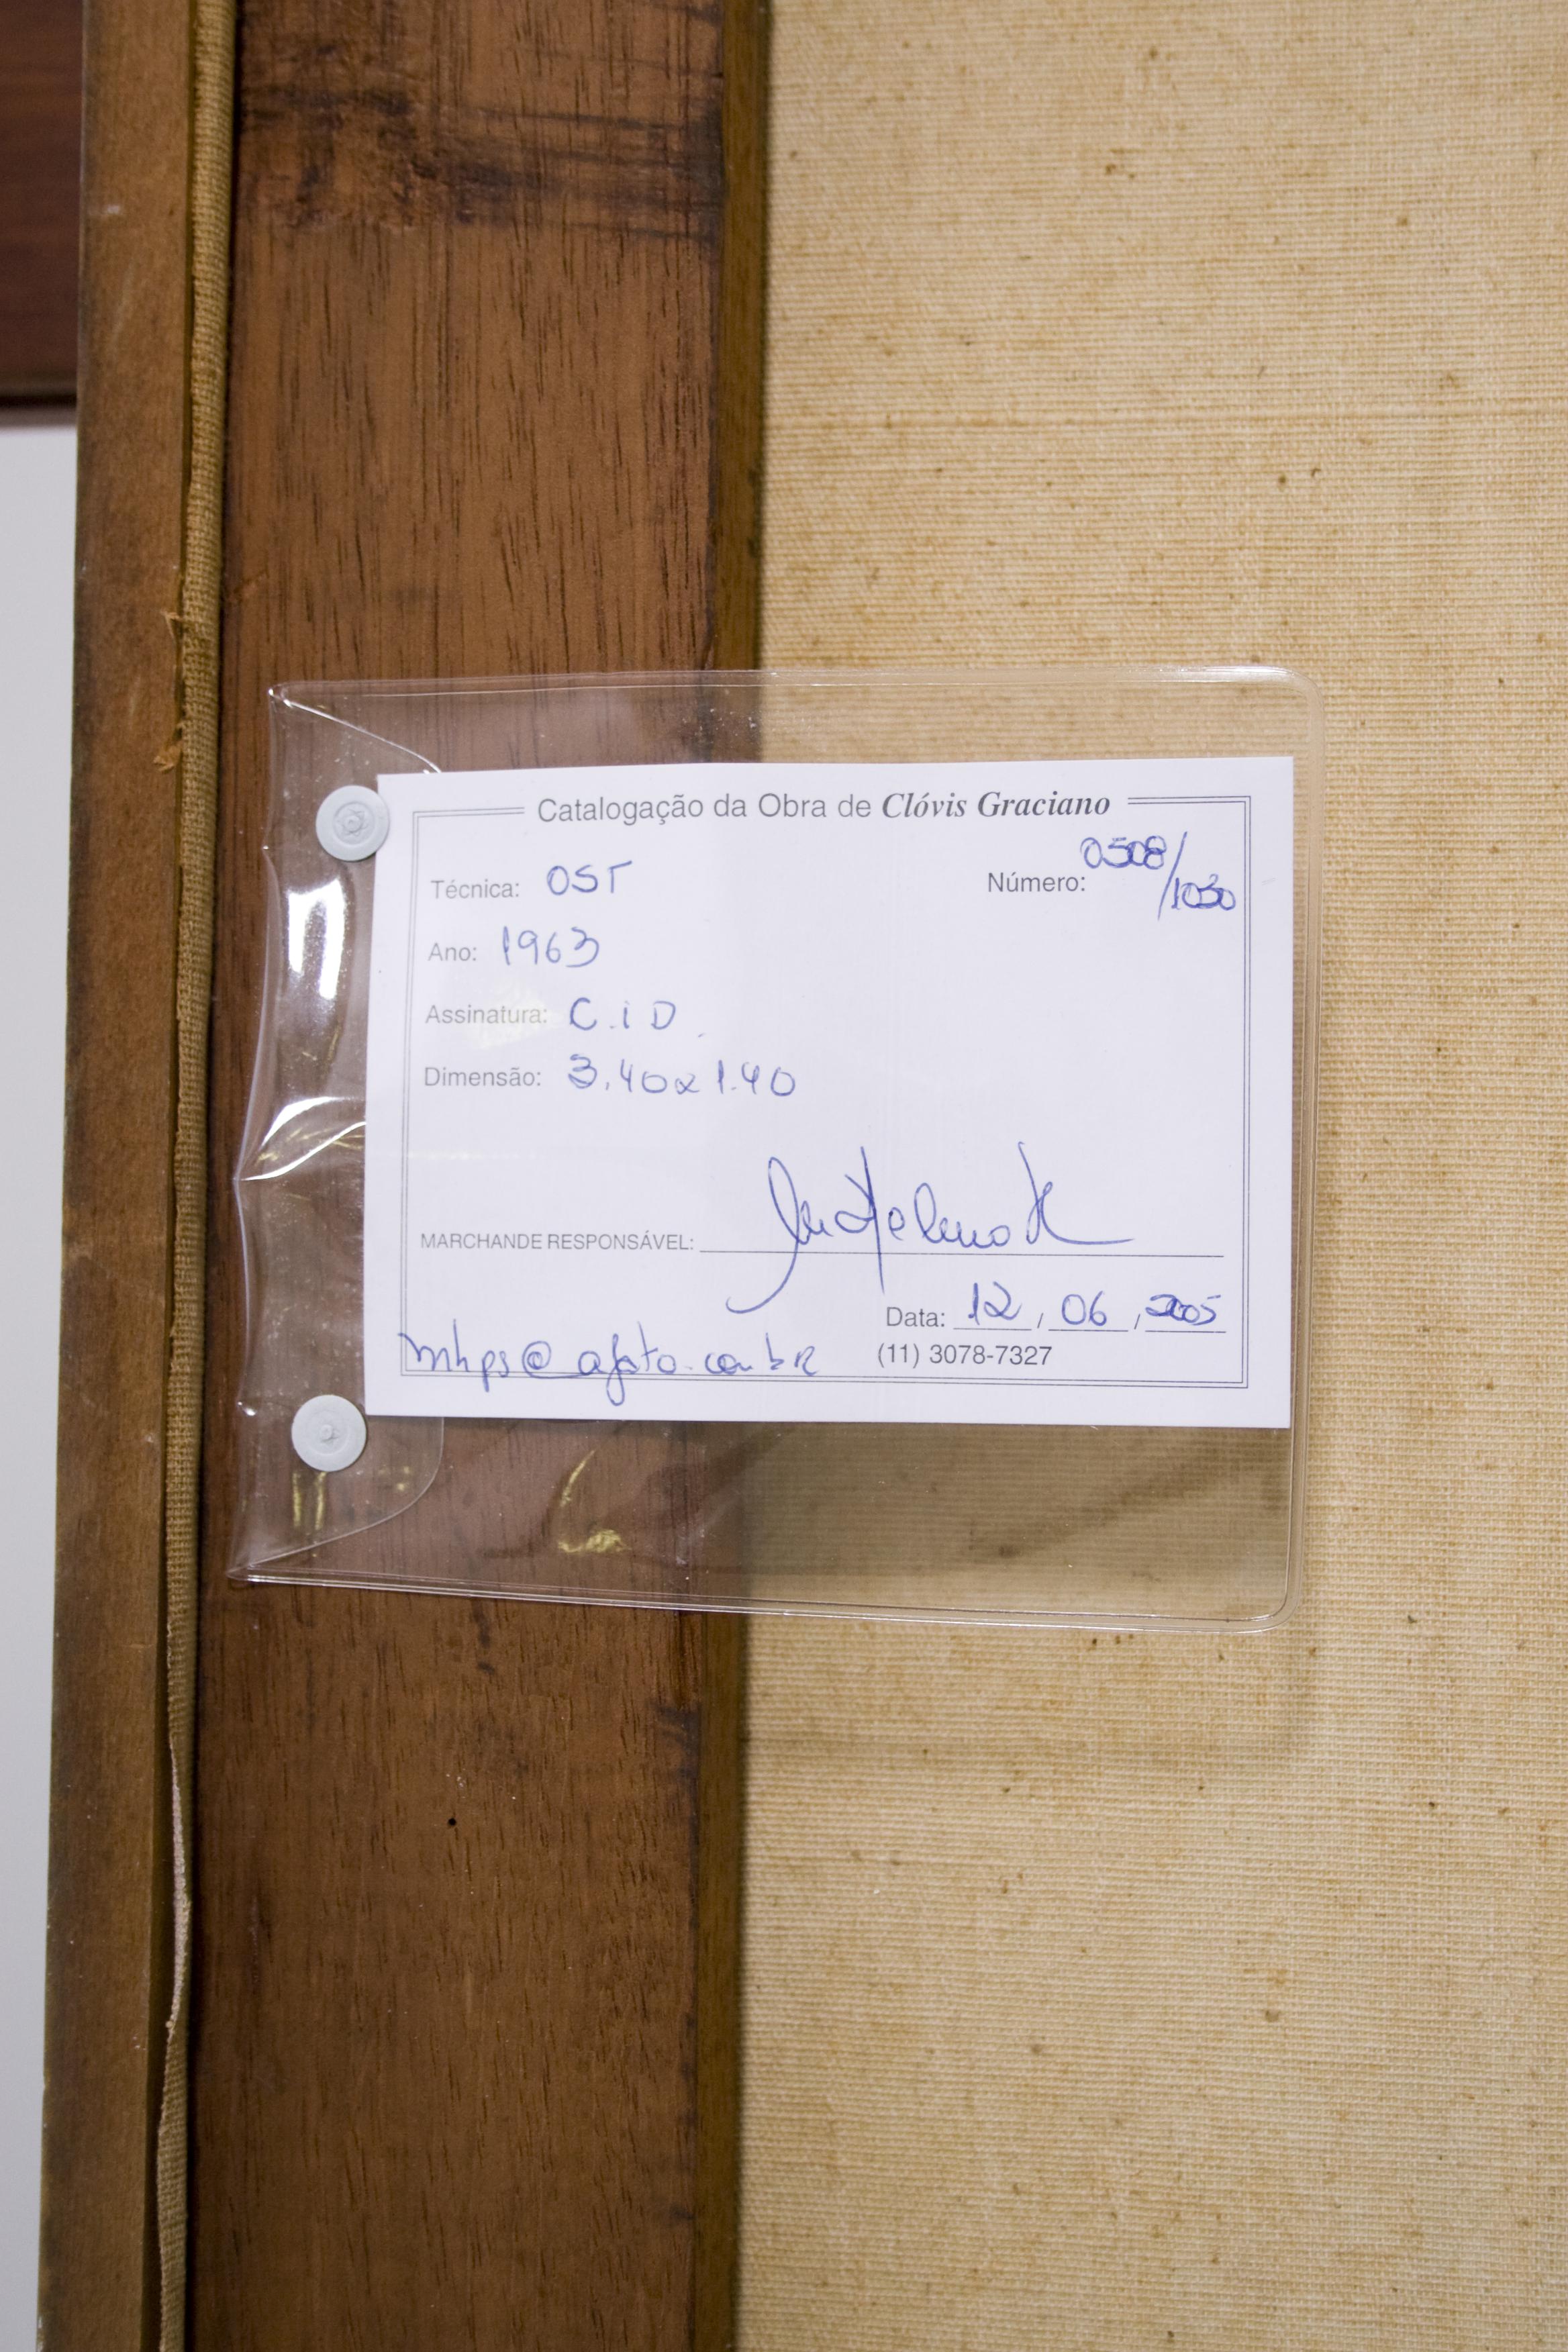 Catalogação da Obra de Clóvis Graciano
Técnica: OST
Número: 0508/1030
Ano: 1963
Assinatura: C.iD.
Dimensão: 3.40x1.40
MARCHANDE RESPONSÁVEL:
Data: 12, 06, 2005
(11) 3078-7327